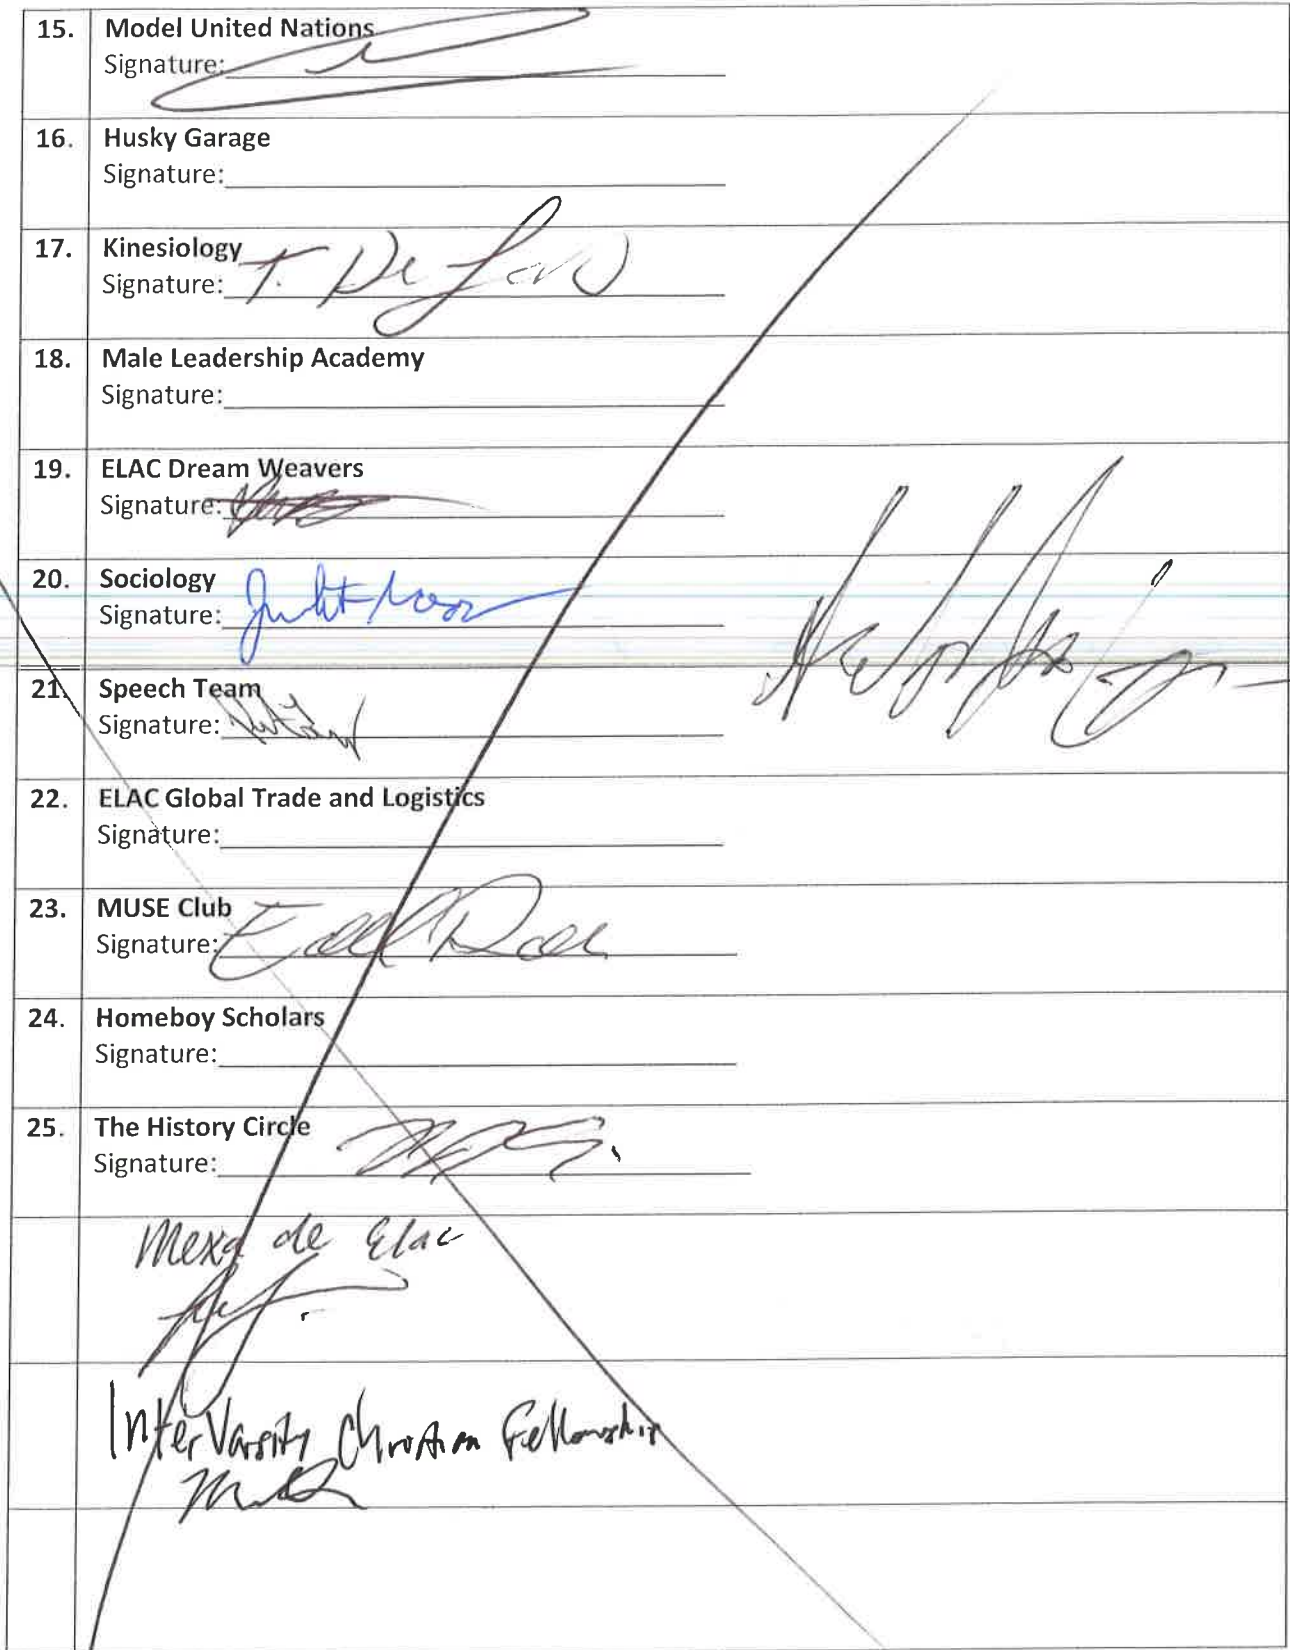 15. Model United Nations
Signature:
16. Husky Garage
Signature:
17. Kinesiology
Signature: T. De
18. Male Leadership Academy
Signature:
19. ELAC Dream Weavers
Signature:
20. Sociology
Signature:
21. Speech Team
Signature:
22. ELAC Global Trade and Logistics
Signature:
23. MUSE Club
Signature:
24. Homeboy Scholars
Signature:
25. The History Circle
Signature:
Mexa de Elac
InterVarsity Christian Fellowship